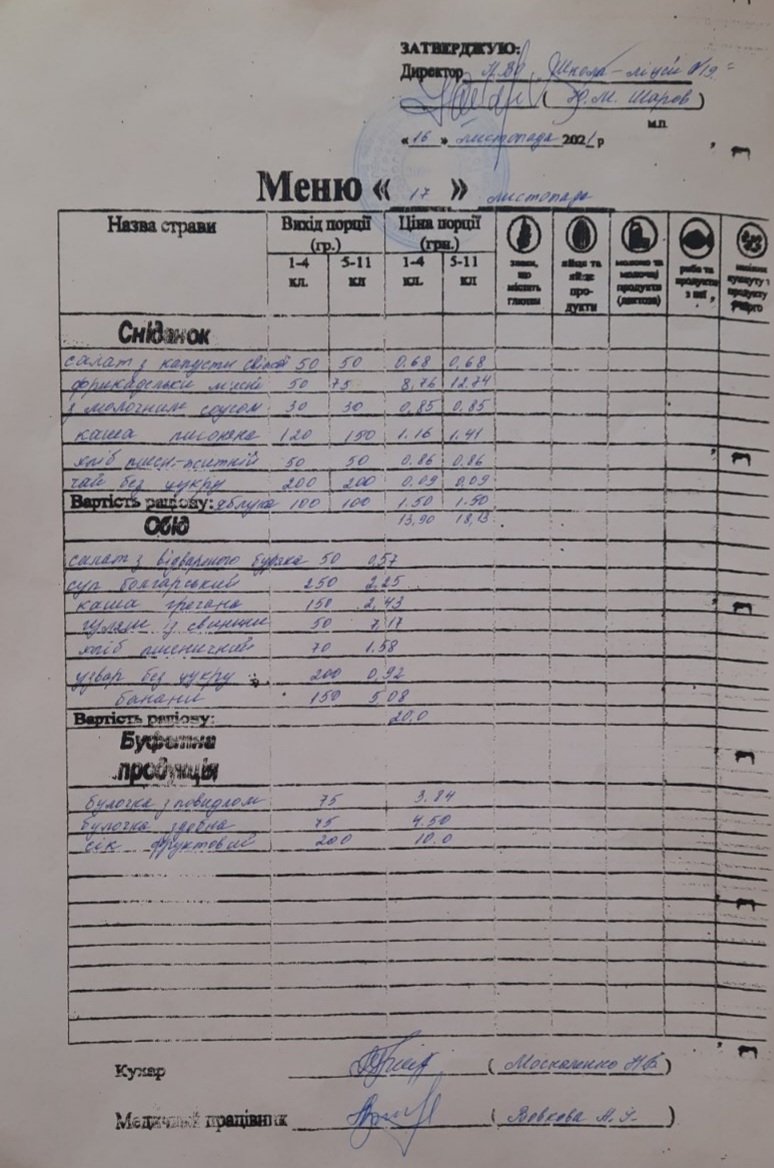 ЗАТВЕРДЖУЮ:
Директор НВО "Школа-ліцей №19"
( Ю.М. Шаров )
М.П.
« 16 » листопада 2021 р
Меню « 17 » листопада
Назва страви Вихід порції (гр.) Ціна порції (грн.) злаки, що містять глютен яйця та яйце продукти молоко та молочні продукти (лактоза) риба та продукти з неї
1-4 кл. 5-11 кл 1-4 кл. 5-11 кл
Сніданок
салат з капусти свіжої 50 50 0.68 0,68
фрикадельки мясні 50 75 8,76 12.74
з молочним соусом 30 30 0,85 0.85
каша пшоняна 120 150 1.16 1.41
хліб пшен-житній 50 50 0.86 0,86
чай без цукру 200 200 0.09 0,09
Вартість раціону: яблука 100 100 1.50 1.50
Обід 13,90 18,13
салат з відвареного буряка 50 0,57
суп болгарський 250 2.25
каша гречана 150 2,43
гуляш із свинини 50 7,17
хліб пшеничний 70 1.58
узвар без цукру 200 0,92
банани 150 5,08
Вартість раціону: 20,0
Буфетна
продукція
булочка з повидлом 75 3.84
булочка здобна 75 4.50
сік фруктовий 200 10.0
Кухар ( Москаленко Н.В. )
Медичний працівник ( Вовкова )